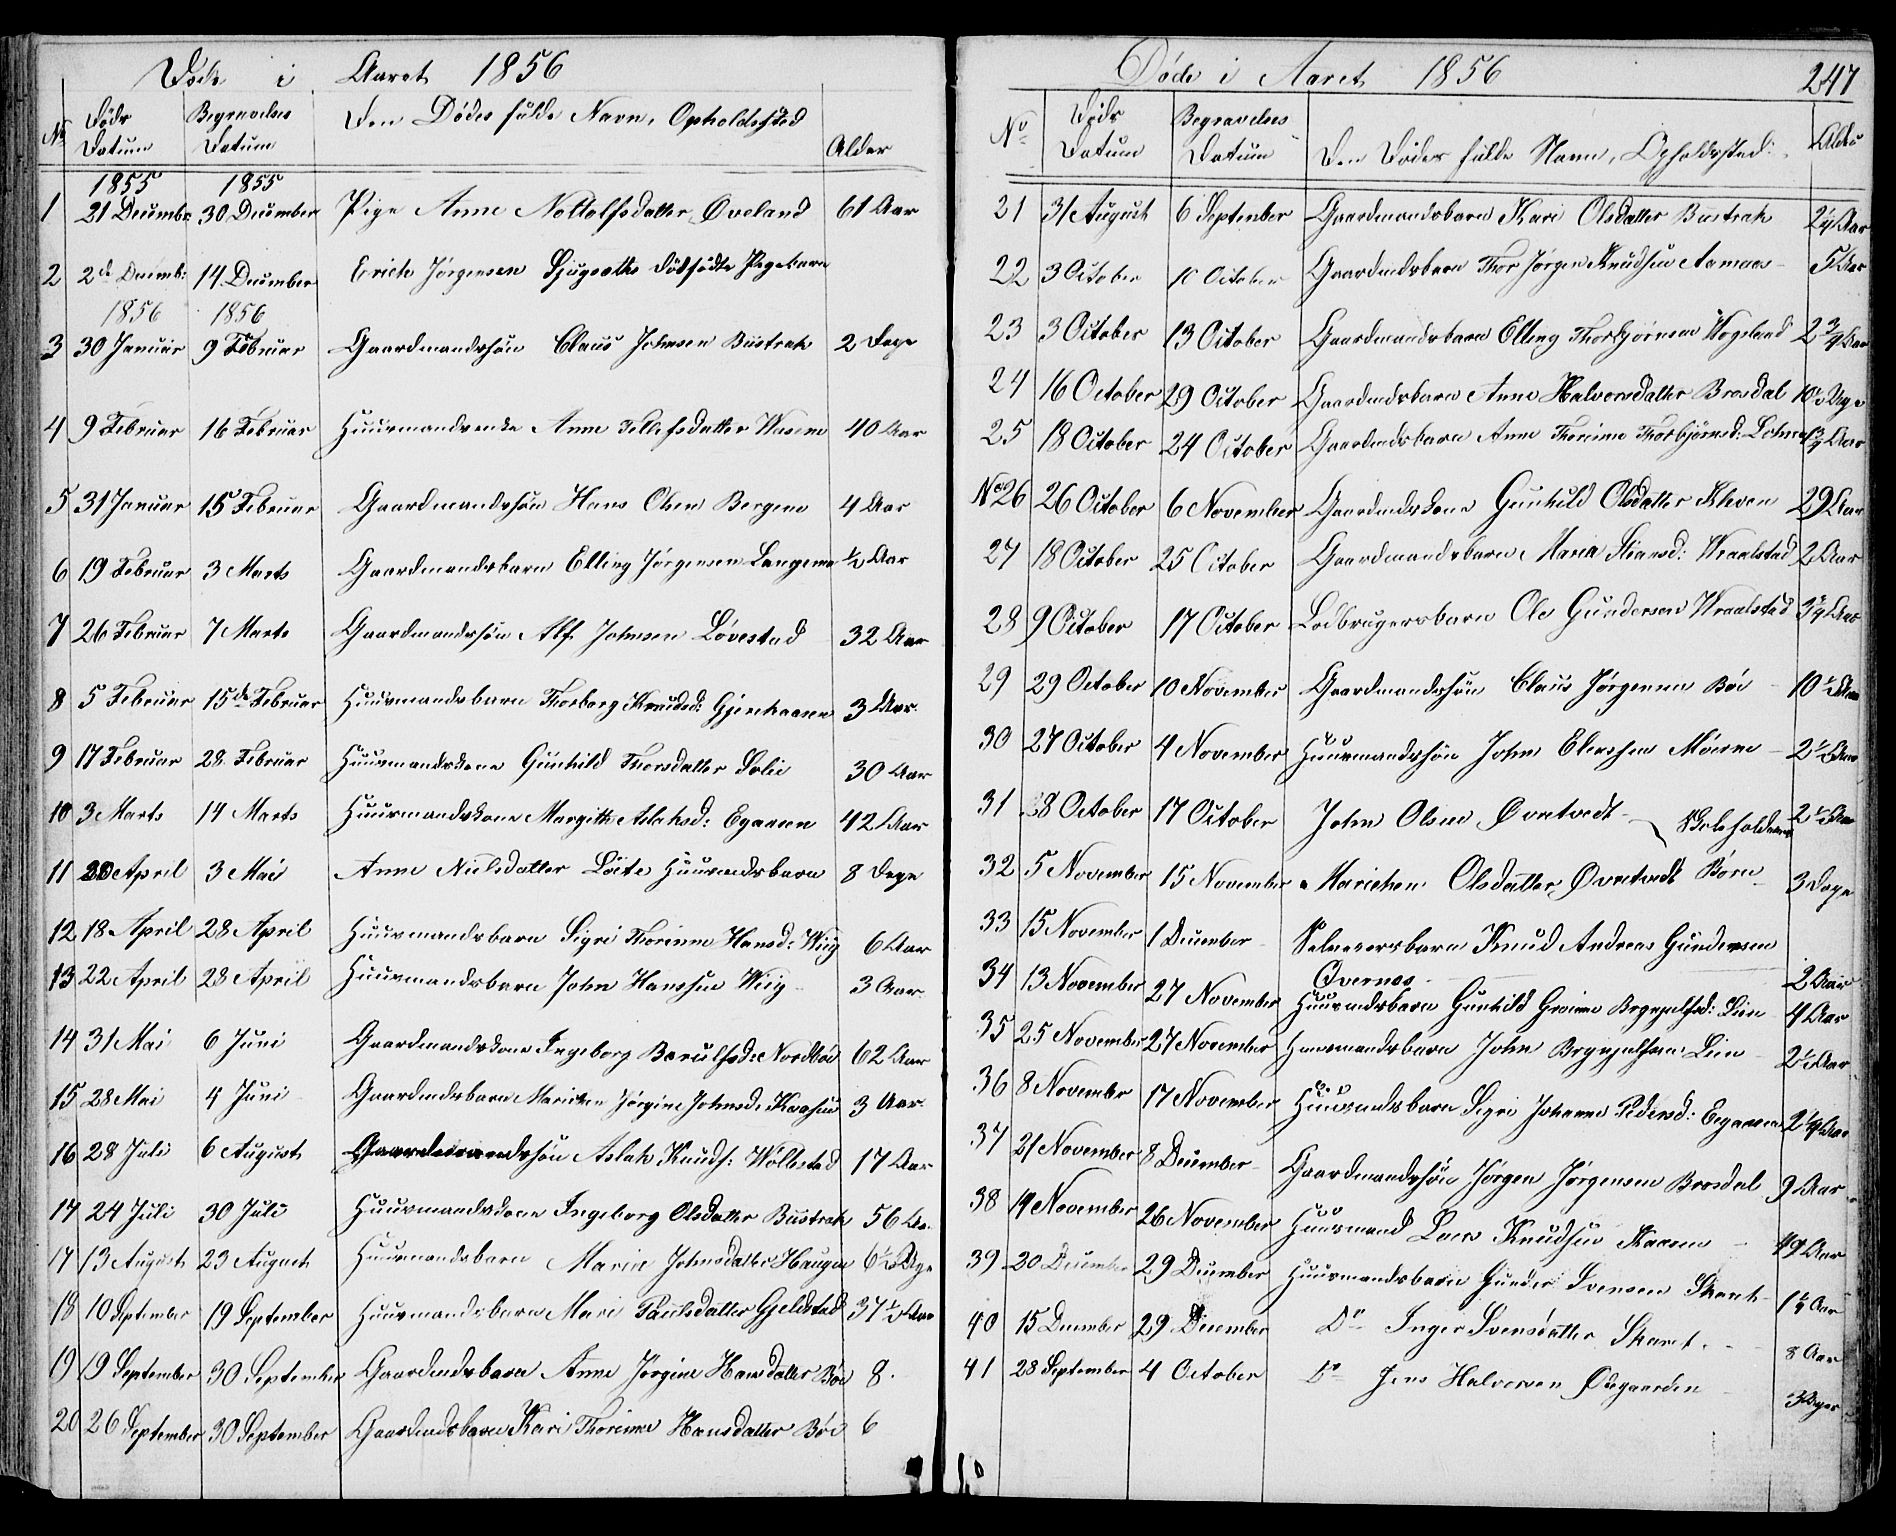 Døde i Aaret 1856
No Døds Datum Begravelses Datum Den Dødes fulde Navn, Opholdssted Alder
1855 1855
1 21 December 30 December Pige Anne Nottolfsdatter Øveland 61 Aar
2 2de Decemb: 14 December Erich Jørgensen Ljugsoths dødfødte Pigebarn
1856 1856
3 30 Januar 9 Februar Gaardmandssøn Claus Johnsen Bustrak 2 Dage
4 9 Februar 16 Februar Huusmandsenke Anne Tellefsdatter 40 Aar
5 31 Januar 15 Februar Gaardmandssøn Hans Olsen Bergene 4 Aar
6 19 Februar 3 Marts Gaardmandsbarn Elling Jørgensen Langeme ½ Aar
7 26 Februar 7 Marts Gaardmandssøn Alf Johnsen Løvestad 32 Aar
8 5 Februar 15de Februar Huusmandsbarn Thorborg Knudsd: 3 Aar
9 17 Februar 28 Februar Huusmandskone Gunhild Thorsdatter Solie 30 Aar
10 3 Marts 14 Marts Huusmandskone Margith Aslaksd: Egaaen 42 Aar
11 20 April 3 Mai Anne Nielsdatter Løite Huusmdsbarn 8 Dage
12 18 April 28 April Huusmandsbarn Sigri Thorinne Hansd: Wiig 6 Aar
13 22 April 28 April Huusmandsbarn John Hanssen Wiig 3 Aar
14 31 Mai 6 Juni Gaardmandskone Ingeborg Berulfsd: Nordbøe 62 Aar
15 28 Mai 4 Juni Gaardmdsbarn Marichen Jørgine Johnsd: Kaasen 3 Aar
16 28 Juli 6 August Gaardmandssøn Aslak Knuds: Wølbstad 17 Aar
17 24 Juli 30 Juli Huusmandskone Ingeborg Olsdatter Bustrak 56 Aa.
17 13 August 23 August Huusmandsbarn Marie Johnsdatter Haugen 6½ Uge
18 10 September 19 September Huusmandsbarn Mari Paulsdatter Gjelstad 37½ Aar
19 19 September 30 September Gaardmdsbarn Anne Jørgine Hansdatter Bøe 8
20 26 September 30 September Gaardmdsbarn Kari Thorinne Hansdatter Bøe 6
Døde i Aaret 1856 247
No Døds Datum Begravelses Datum Den Dødes fulde Navn, Opholdssted: Alder
21 31 August 6 September Gaardmandsbarn Kari Olsdatter Bustrak 2¼ Aar
22 3 October 10 October Gaardmdsbarn Thor Jørgen Knudsen Aamaas 5 Aar
23 3 October 13 October Gaardmandsbarn Elling Thorbjørnsen Wegeland 2¾ Aar
24 16 October 29 October Gaardmdsbarn Anne Halvorsdatter Brosdal 10½ Uge
25 18 October 24 October Gaardmdsbarn Anne Thorinne Thorbjørnsd: Aar
No 26 26 October 6 November Gaardmdskone Gunhild Olsdatter Kleven 29 Aar
27 18 October 25 October Gaardmandsbarn Maria Kiansd: Wraalstad 2 Aar
28 9 October 17 October Lodbrugersbarn Ole Gundersen Wraalstad 3¼ Aar
29 29 October 10 November Gaardmandssøn Claus Jørgensen Bøe 10½ Aar
30 27 October 4 November Huusmandssøn John Eliassen Moerne 2½ Aar
31 8 October 17 October John Olsen Øvretvedt Skoleholderens 2½ Aar
32 5 November 15 November Marichen Olsdatter Øvretvedt Børn 3 Dage
33 15 November 1 December Selveiersbarn Knud Andreas Gundersen
Øvernæs 2 Aar
34 13 November 27 November Huusmdsbarn Gunhild Lien 4 Aar
35 25 November 27 November Huusmandsbarn John Lien 2½ Aar
36 8 November 17 November Huusmdsbarn Sigri Johanne Pedersd: Egaaen 2¼ Aar
37 21 November 8 December Gaardmandssøn Jørgen Jørgensen Brosdal 9 Aar
38 19 November 26 November Huusmand Lars Knudsen Kaasen 49 Aar
39 20 December 29 December Huusmandsbarn Gunder Svensen Skaret 1½ Aar
40 15 December 29 December Do Inger Svensdatter Skaret 8 Aar
41 28 September 4 October Do Jens Halvorsen Øigaarden 3 Uger